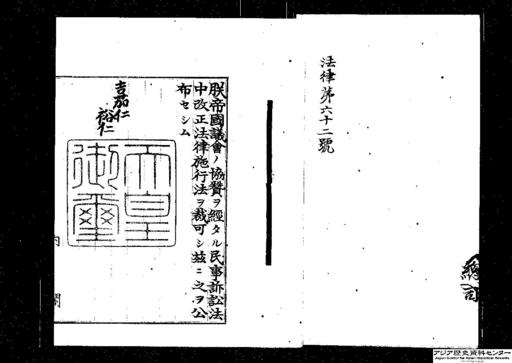 法律第六十二號
朕帝國議會ノ協贊ヲ經タル民事訴訟法
中改正法律施行法ヲ裁可シ玆ニ之ヲ公
布セシム
嘉仁
裕仁
天皇
御璽
内閣
アジア歴史資料センター
Japan Center for Asian Historical Records